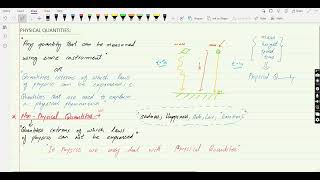 PHYSICAL QUANTITIES:
"Any quantity that can be measured
using some instrument"
OR
Quantities interms of which laws
of physics can be expressed
Quantities that are used to explain
a physical phenomenon
Non-Physical Quantities
"Quantities interms of which laws
of physics can not be expressed"
sadness, Happiness,
"In Physics we only deal with Physical Quantities"
mass
height
time
Physical